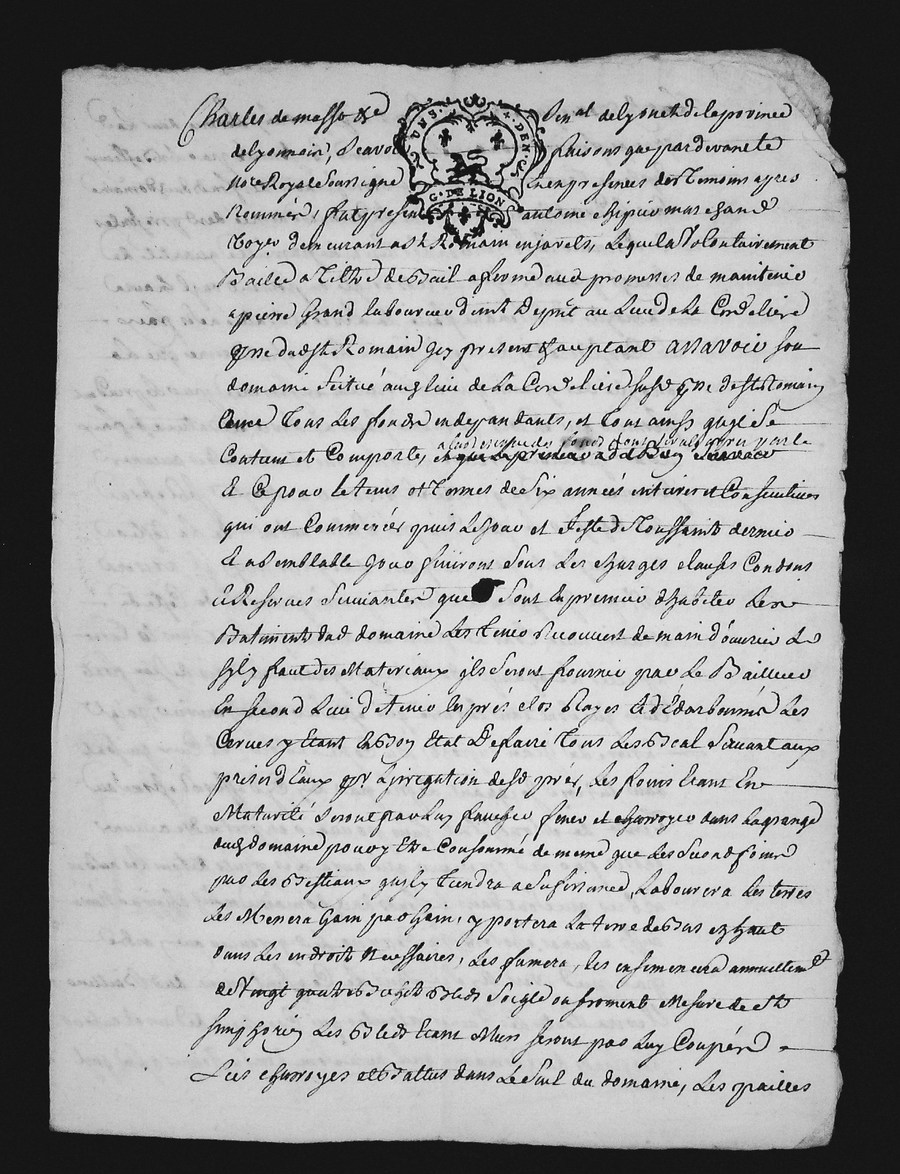 Charles de masso &c Senal de Lyon et de la povince
UN S. 4. DEN.
G. DE LION
de Lyonnois, Scavoir faisons que par devant le
no.re Royal Soussigne en presences des Temoins apres
Nommés, fut present marchand
demeurant a st Romain en jarets, Lequel a Volontairement
Baille a Titre de Bail a ferme avec promesses de maintenir
a pierre Grand laboureur du Lieu de La Cordeliere
psse dud st Romain Icy present & acceptant assavoir son
domaine Scitué aud lieu de La Cordeliere susd psse de st Romain
avec Tous Les fonds en depandants, et Tout ainsy quil Se
Contient et Comporte,
Et Ce pour le tems et Termes de Six années entieres et Consecutives
qui ont Commencées puis Le jour et feste de Toussaints dernier
Et a Semblable jour finiront Sous Les Charges clauses Condons
& Reserves Suivantes que Sont le premier d'habiter Les
Batiments dud domaine Les Tenir Recouvert de main d'ouvrier Et
Sily faut des Materiaux ils Seront fournir par Le Bailleur
En second Lieu de tenir les prés clos Et Les
Cerves y Etant En Bon Etat De faire Tous Les Beal Servant aux
prises d'Eaux pr Lirrigation desd prés, Les foins Etant En
Maturité Seront par Luy faucher fener et charroyer dans La grange
dud domaine pour y Etre Consommé de meme que Les Second foins
par Les Bestiaux quily Tiendra a Sufisance, Labourera Les terres
Les Menera Gain par Gain, y portera La terre de Bas en haut
dans Les endroit Necessaires, Les fumera, les ensemencera annuellemt
de Vingt quatre Bichets Bleds Seigle ou froment Mesure de st
simphorien Les Bleds Etant Murs Seront par Luy Coupés
Liés charroyes et Battus dans Le Suel du domaine, Les pailles